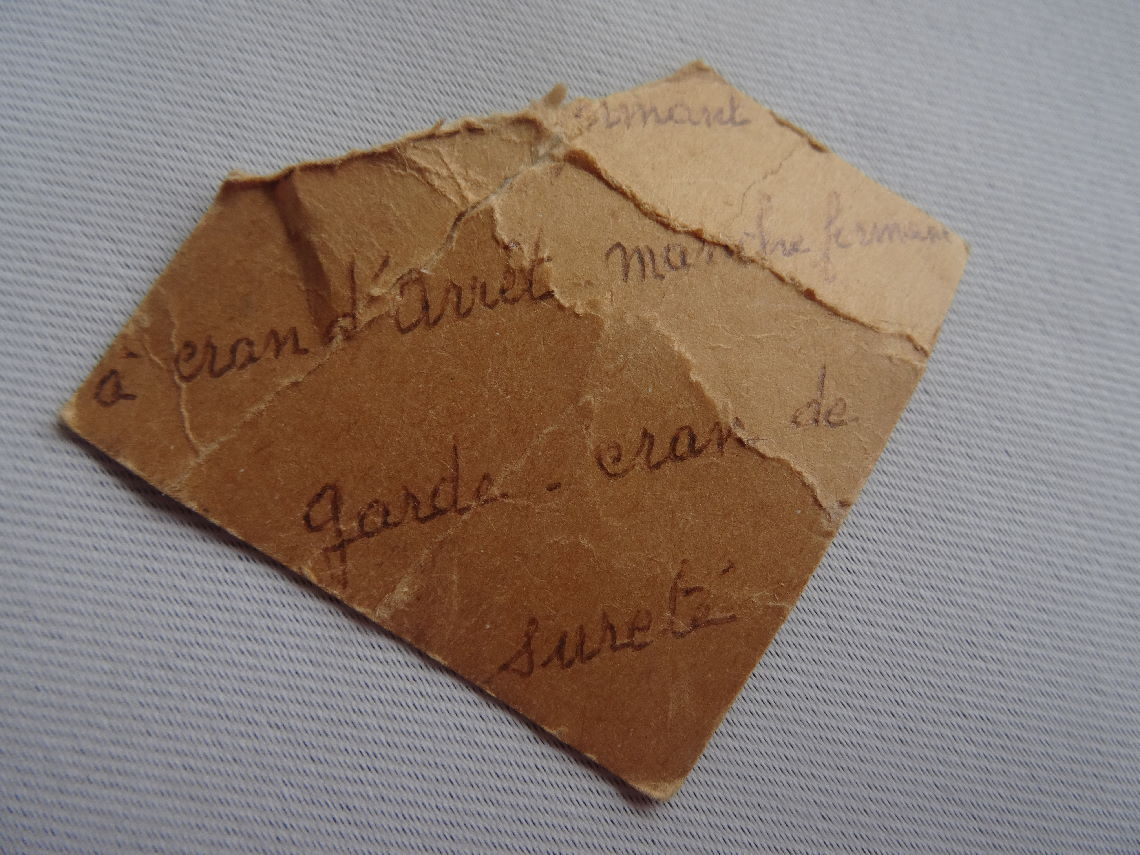 ormant
à cran d'arrêt - manche fermant
garde - cran de
sureté